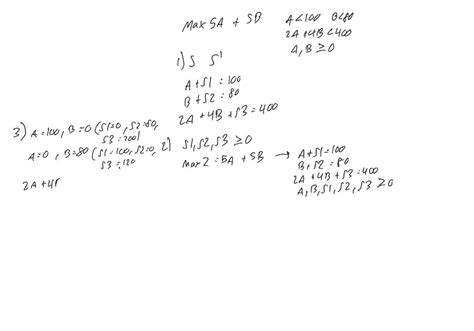 Max 5A + 5B A<100 B<80
2A+4B<400
A,B ≥0
1) S S'
A+S1=100
B+S2=80
2A+4B+S3=400
3) A=100, B=0 (S1=0, S2=80,
S3=200)
A=0, B=80 (S1=100, S2=0,
S3=120
2A+4B
2) S1,S2,S3 ≥0
max Z=5A+5B → A+S1=100
B+S2=80
2A+4B+S3=400
A,B,S1,S2,S3 ≥0